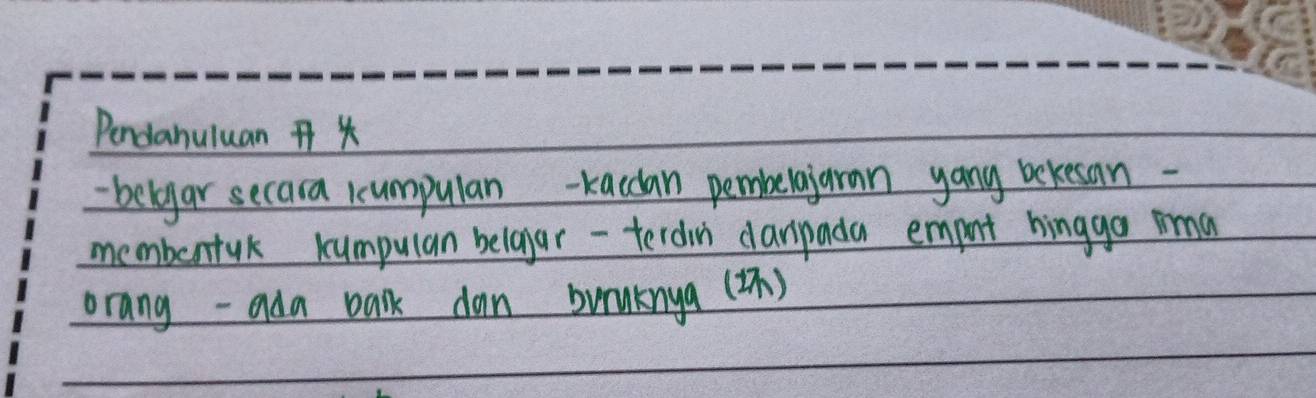 Pendahuluan 开头
-belajar secara kumpulan -kaedan pembelajaran yang bekesan -
membentuk kumpulan belajar - terdiri daripada empat hingga lima
orang - ada baik dan buruknya (坏)